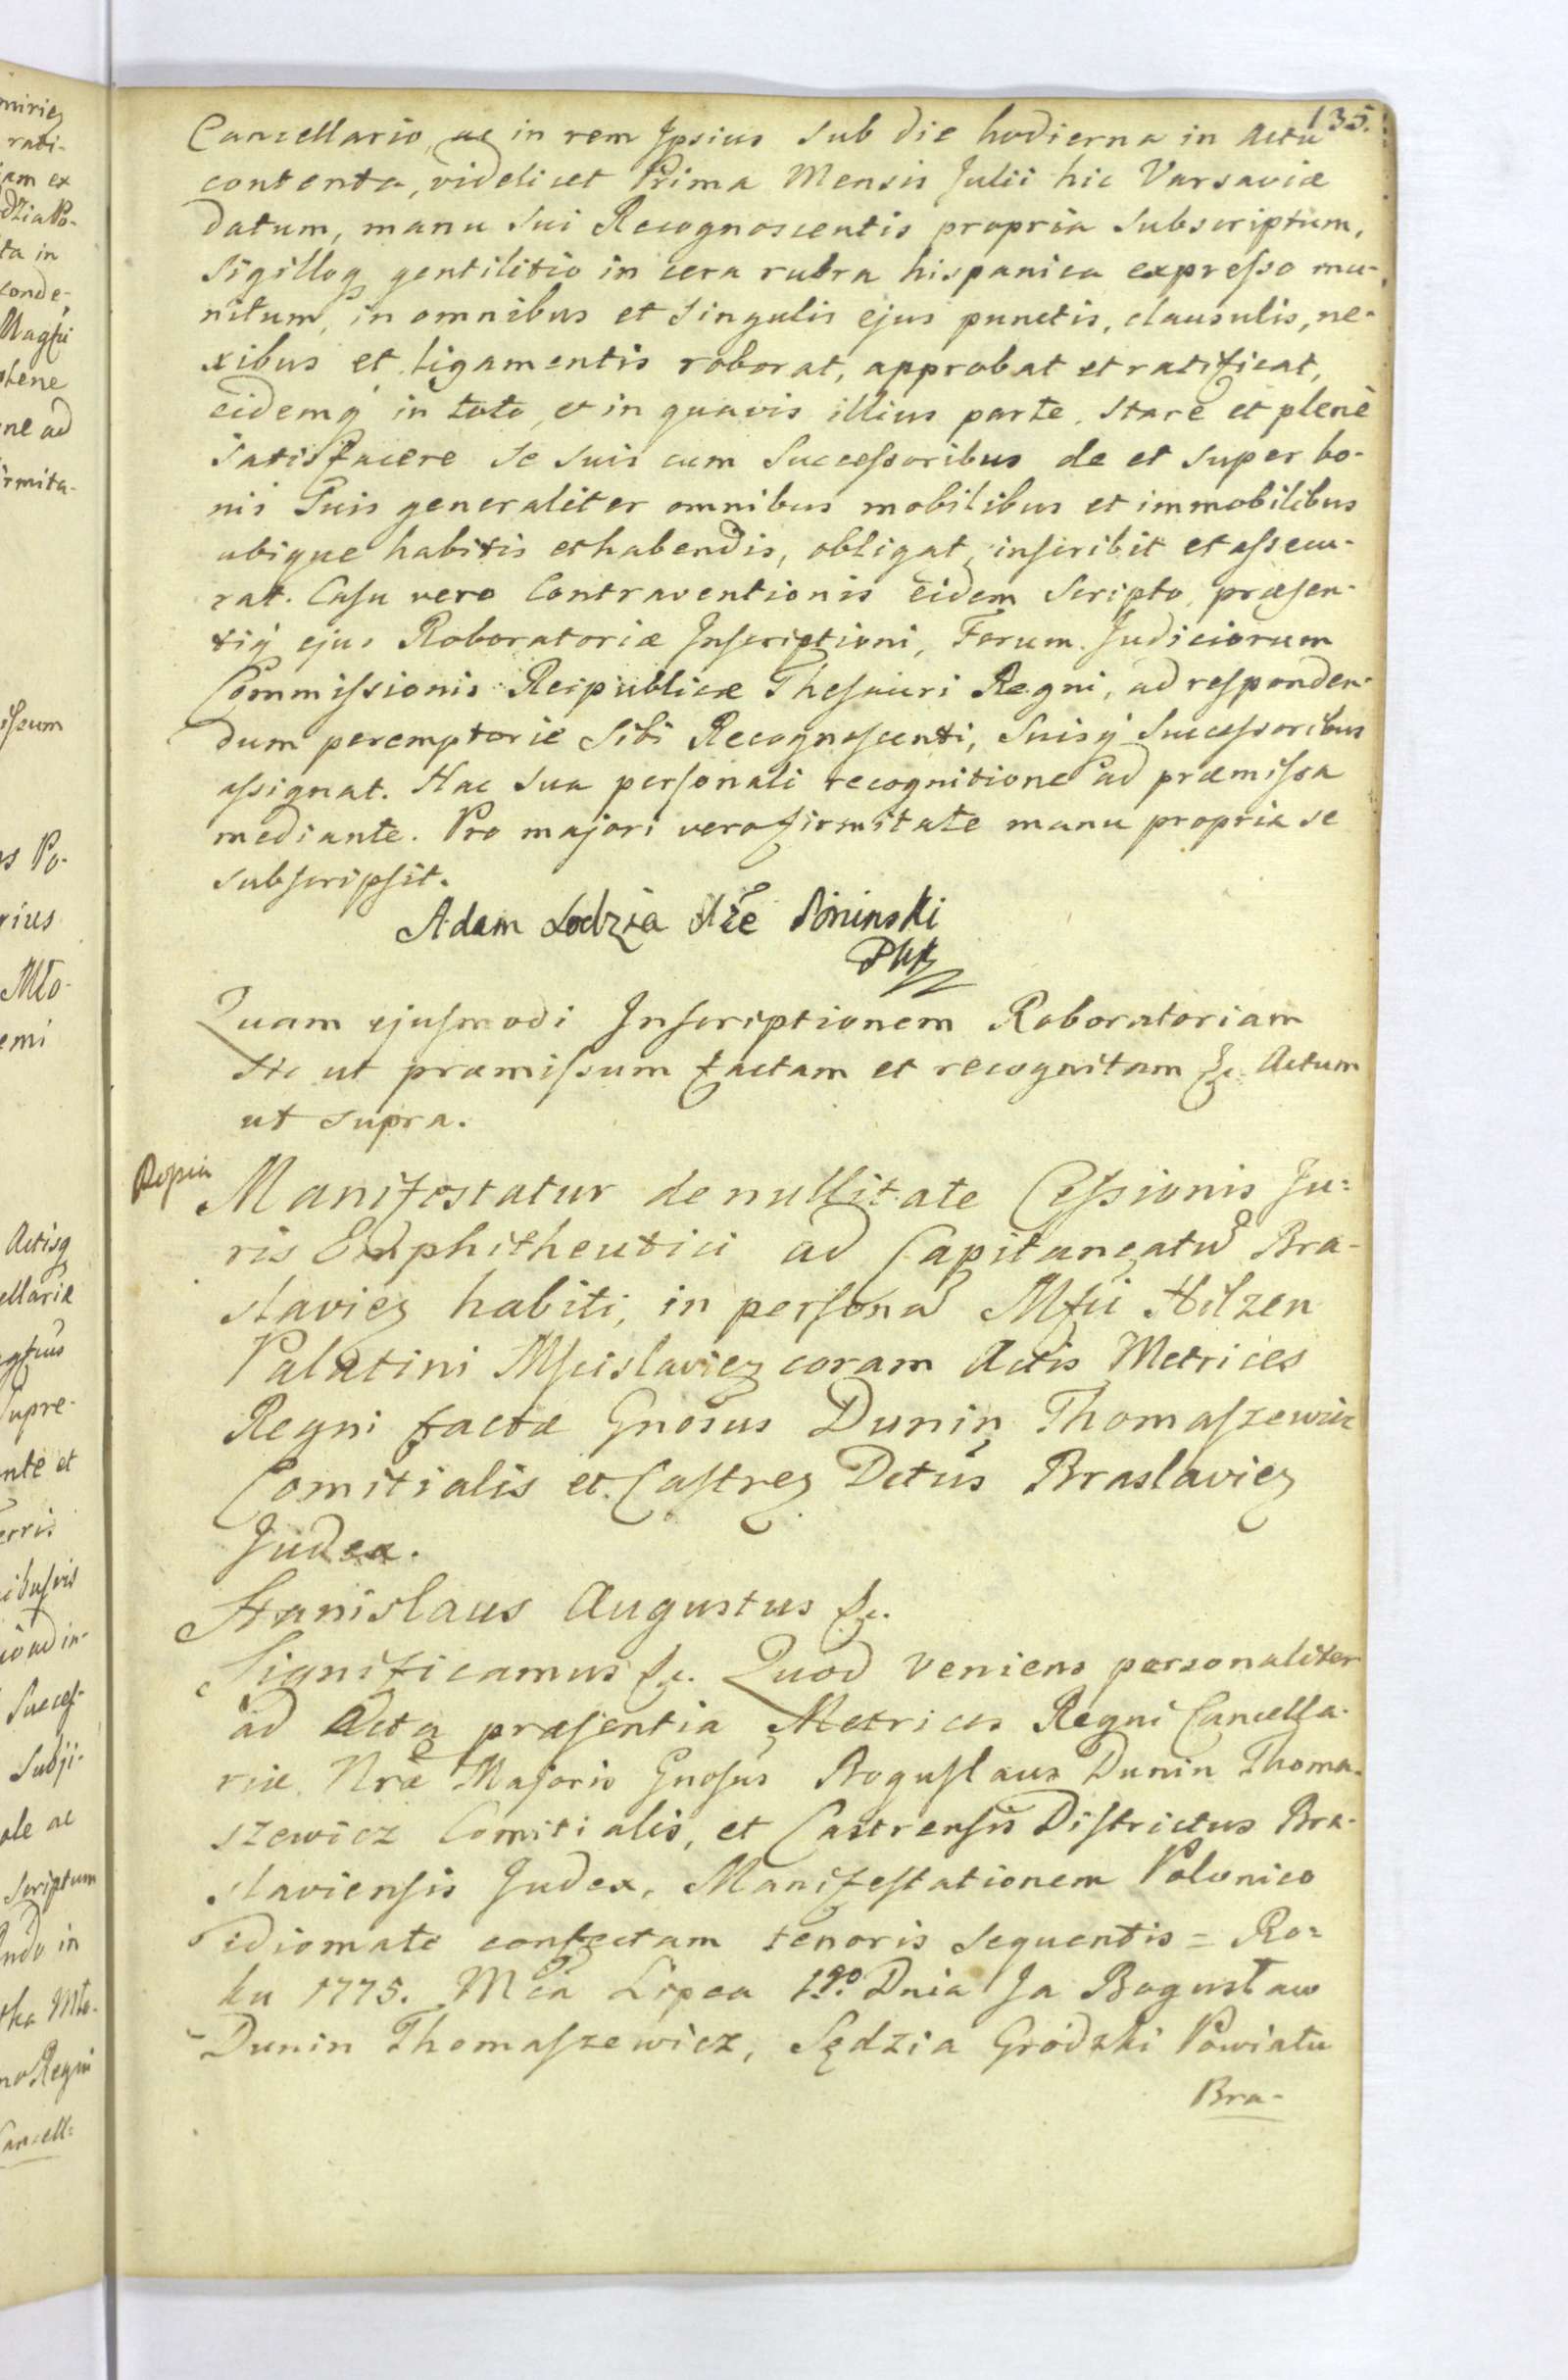 135.
Cancellario, ac in rem Ipsius sub die hodierna in Actu
contenta, videlicet Prima Mensis Julii hic Varsaviæ
datum, manu sui Recognoscentis propria subscriptum,
sigilloq gentilitio in cera rubra hispanica expresso mu-
nitum, in omnibus et singulis ejus punctis, clausulis, ne-
xibus et ligamentis roborat, approbat et ratificat,
eidemq in toto, et in quavis illius parte, stare et plenè
satisfacere se suis cum Successoribus de et super bo-
nis Suis generaliter omnibus mobilibus et immobilibus
ubique habitis et habendis, obligat, inscribit et assecu-
rat. Casu vero Contraventionis eidem Scripto, præsen-
tiq ejus Roboratoriæ Inscriptioni, Forum Judiciorum
Commissionis Reipublicæ Thesauri Regni, ad responden-
dum peremptorie Sibi Recognoscenti, Suisq Successoribus
assignat. Hac sua personali recognitione ad præmissa
mediante. Pro majori vero firmitate manu propria se
subscripsit.
Adam Lodzia Xże Poninski
Quam ejusmodi Inscriptionem Roboratoriam
sic ut præmissum factam et recognitam &c. Actum
ut supra.
Manifestatur de nullitate Cessionis Ju-
ris Emphitheutici ad Capitaneatũ Bra-
slavieñ habiti, in personã Mfci Hilzen
Palatini Mscislavieñ coram Actis Metrices
Regni factæ Gnosus Dunin Thomaszewicz
Comitialis et Castreñ Dctus Braslavieñ
Judex.
Stanislaus Augustus &c.
Significamus &c. Quod veniens personaliter
ad Acta præsentia Metrices Regni Cancella-
riæ Nræ Majoris Gnosus Boguslaus Dunin Thoma-
szewicz Comitialis, et Castrensis Districtus Bra-
slaviensis Judex, Manifestationem Polonico
idiomate confectam tenoris sequentis = Ro-
ku 1775. Mca Lipca 1go. Dnia Ja Bogusław
Dunin Thomaszewicz, Sędzia Grodzki Powiatu
Bra-